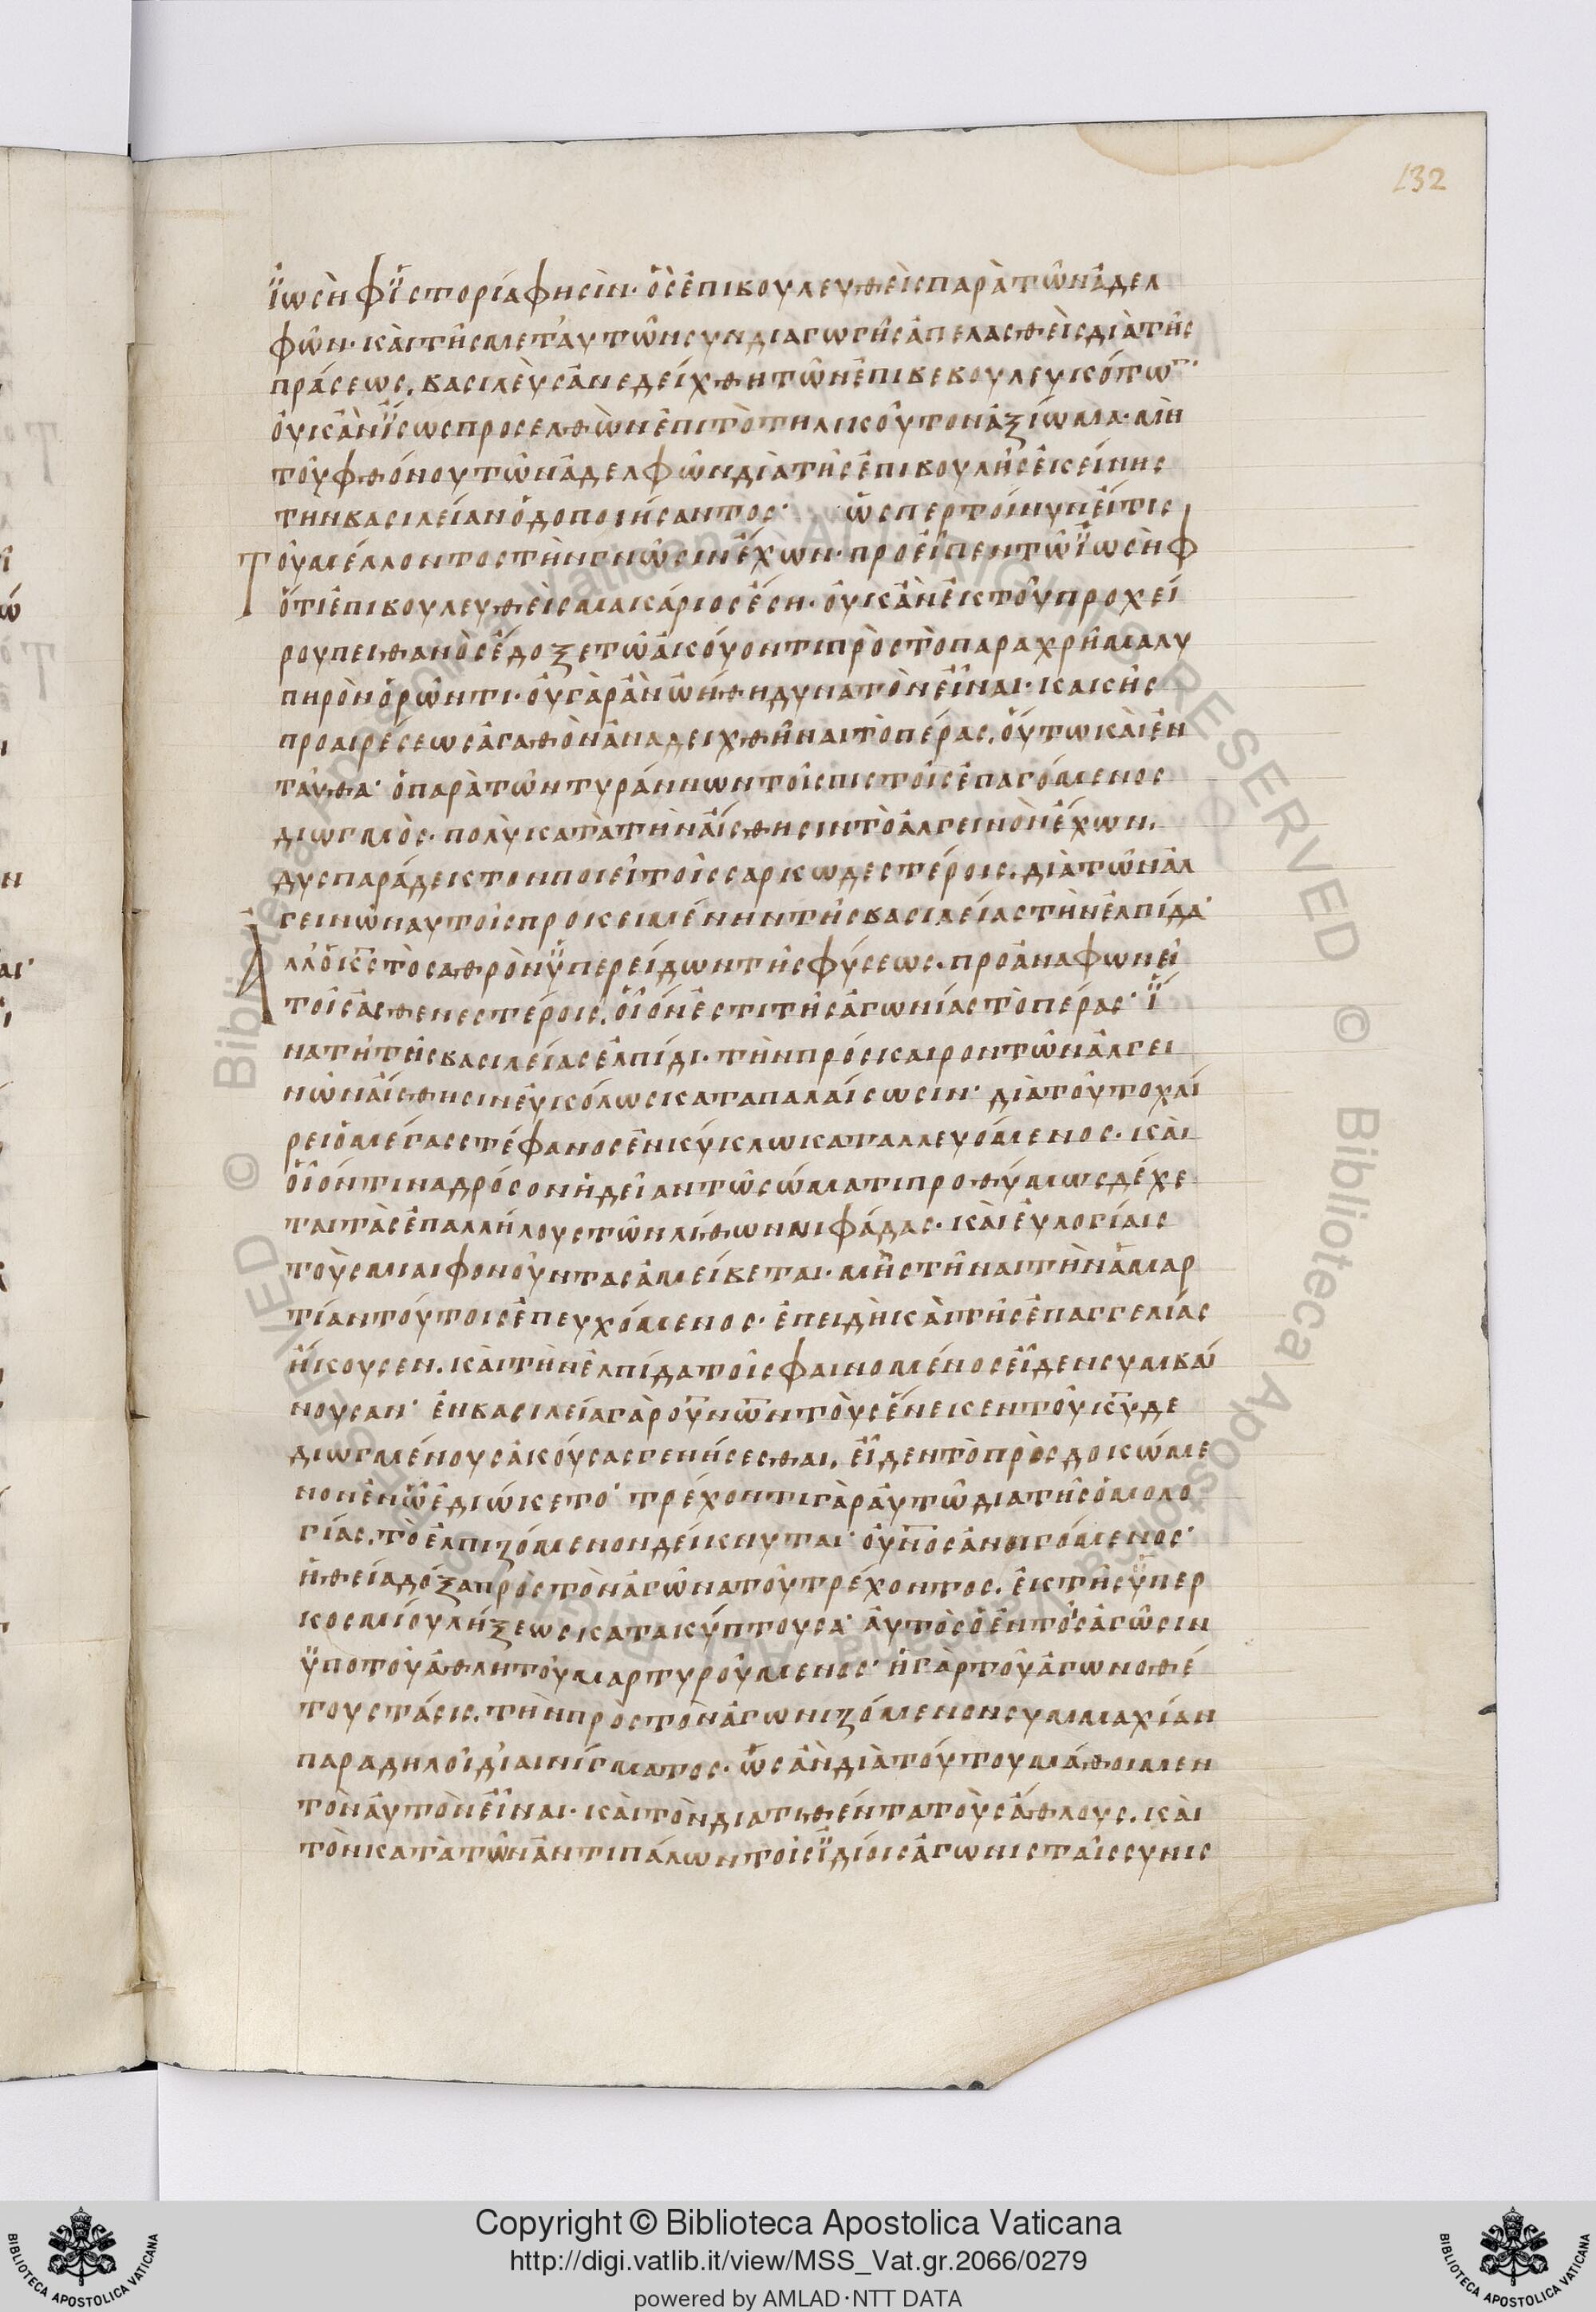 132
ἰωσὴφ ἱστορία φησὶν· ὃς ἐπιβουλευθεὶς παρὰ τῶν ἀδελ
φῶν· καὶ τῆς μετ' αὐτῶν συνδιαγωγῆς ἀπελασθεὶς διὰ τῆς
πράσεως, βασιλεὺς ἀνεδείχθη τῶν ἐπιβεβουλευκότω̅·
οὐκ ἂν ἴσως προσελθὼν ἐπὶ τὸ τηλικοῦτον ἀξίωμα· μὴ
τοῦ φθόνου τῶν ἀδελφῶν διὰ τῆς ἐπιβουλῆς ἐκείνης
τὴν βασιλείαν ὁδοποιήσαντος· ὥσπερ τοίνυν εἴ τις
Τοῦ μέλλοντος τὴν γνῶσιν ἔχων· προεῖπεν τῷ ἰωσὴφ
ὅτι ἐπιβουλευθεὶς μακάριος ἔση· οὐκ ἂν ἐκ τοῦ προχεί
ρου πειθανὸς ἔδοξε τῷ ἀκούοντι πρὸς τὸ παραχρῆμα λυ
πηρὸν ὁρῶντι· οὐ γὰρ ἂν ὠήθη δυνατὸν εἶναι· κακῆς
προαιρέσεως ἀγαθὸν ἀναδειχθῆναι τὸ πέρας, οὕτω καὶ ἐν
ταῦθα· ὁ παρὰ τῶν τυράννων τοῖς πιστοῖς ἐπαγόμενος
διωγμὸς· πολὺ κατὰ τὴν αἴσθησιν τὸ ἀλγεινὸν ἔχων.
δυσπαράδεκτον ποιεῖ τοῖς σαρκωδεστέροις. διὰ τῶν ἀλ
γεινῶν αὐτοῖς προκειμένην τῆς βασιλείας τὴν ἐλπίδα·
Ἀλλ' ὁ κ̅ς̅ τὸ σαθρὸν ὑπερείδων τῆς φύσεως. προαναφωνεῖ
τοῖς ἀσθενεστέροις, οἷόν ἐστι τῆς ἀγωνίας τὸ πέρας· ἵ
να τῇ τῆς βασιλείας ἐλπίδι· τὴν πρόσκαιρον τῶν ἀλγει
νῶν αἴσθησιν εὐκόλως καταπαλαίσωσιν· διὰ τοῦτο χαί
ρει ὁ μέγας στέφανος ἐν κύκλω καταλλευόμενος· καὶ
οἷόν τινα δρόσον ἡδεῖαν τῷ σώματι προθύμως δέχε
ται τὰς ἐπαλλήλους τῶν λίθων νιφάδας· καὶ εὐλογίαις
τοὺς μιαιφονοῦντας ἀμείβεται· μὴ στῆναι τὴν ἁμαρ
τίαν τούτοις ἐπευχόμενος· ἐπειδὴ καὶ τῆς ἐπαγγελίας
ἤκουσεν. καὶ τὴν ἐλπίδα τοῖς φαινομένοις εἶδεν συμβαί
νουσαν· ἐν βασιλεία γὰρ ο̅υ̅ν̅ω̅ν̅ τοὺς ἕνεκεν τοῦ κ̅υ̅ δε
διωγμένους ἀκούσας γενήσεσθαι, εἶδεν τὸ προσδοκώμε
νον ἐν ᾧ ἐδιώκετο· τρέχοντι γὰρ αὐτῷ διὰ τῆς ὁμολο
γίας, τὸ ἐλπιζόμενον δείκνυται· ο̅υ̅ν̅ο̅ς̅ ἀνοιγόμενος·
ἡ θεία δόξα πρὸς τὸν ἀγῶνα τοῦ τρέχοντος. ἐκ τῆς ὑπερ
κοσμίου λήξεως κατακύπτουσα· αὐτὸς ὁ ἐν τοῖς ἀγῶσιν
ὑπὸ τοῦ ἀθλητοῦ μαρτυρούμενος· ἡ γὰρ τοῦ ἀγωνοθέ
του στάσις, τὴν πρὸς τὸν ἀγωνιζόμενον συμμαχίαν
παραδηλοῖ δι' αἰνίγματος· ὡς ἂν διὰ τούτου μάθοιμεν
τὸν αὐτὸν εἶναι· καὶ τὸν διατιθέντα τοὺς ἄθλους. καὶ
τὸν κατὰ τῶν ἀντιπάλων τοῖς ἰδίοις ἀγωνισταῖς συνισ
Copyright © Biblioteca Apostolica Vaticana
http://digi.vatlib.it/view/MSS_Vat.gr.2066/0279
powered by AMLAD·NTT DATA